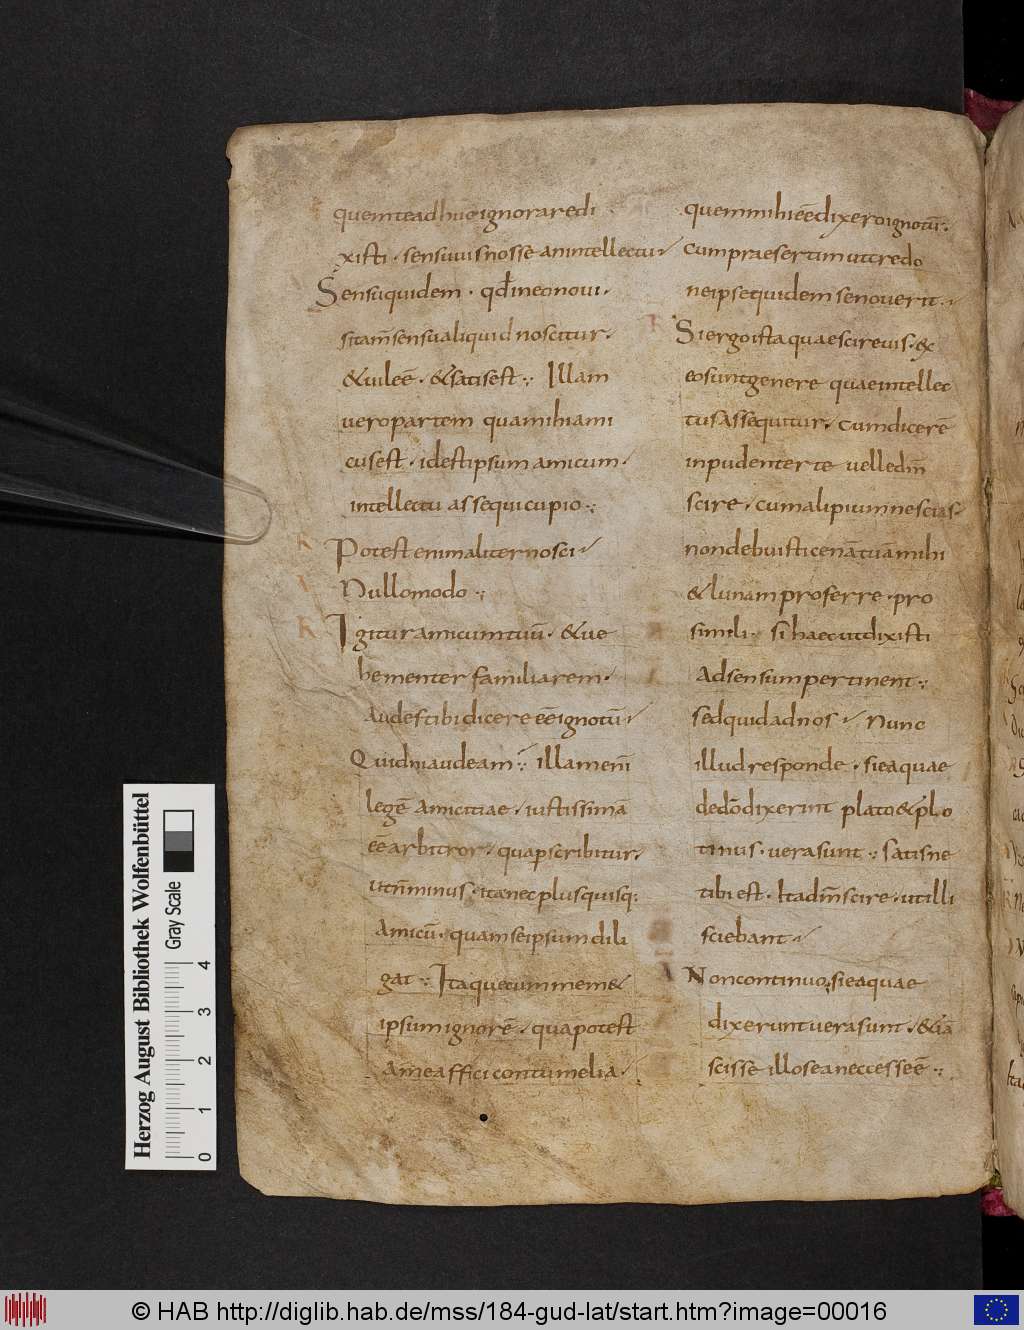 quem te adhuc ignorare di
xisti · sensu uis nosse an intellectu·
Sensu quidem · qđ in eo noui·
si tam̄ sensu aliquid noscitur·
& uile ē · & sat est ·: Illam
uero partem qua mihi ami
cus est · id est ipsum amicum·
intellectu assequi cupio ·:
R Potest enim aliter nosci·
Nullo modo ·:
R Igitur amicum tuū · & ue
hementer familiarem·
audes tibi dicere eē ignotū·
Quidni audeam ·: illam enī
legē amicitiae · iustissimā
eē arbitror · qua p̄scribitur·
ut n̄ minus · ita nec plus quisq:
amicū · quam se ipsum dili
gat ·: Itaque cum mem&
ipsum ignorē · qua potest
a me affici contumelia·
quem mihi eē dixero ignotū·:
cum praesertim ut credo
ne ipse quidem se nouerit ·
R Si ergo ista quae scire uis · ex
eo sunt genere quae intellec
tus assequitur · cum dicerē
inpudenter te uelle dm̄
scire · cum alipium nescias·
non debuisti cenā tuā mihi
& lunam proferre · pro
simili · si haec ut dixisti
ad sensum pertinent ·:
sed quid ad nos · Nunc
illud responde · si ea quae
de dō dixerunt plato & plo
tinus · uera sunt ·: satis ne
tibi est · Ita dm̄ scire · ut illi
sciebant ·
A Non continuo · si ea quae
dixerunt uera sunt · &iā
scisse illos ea necesse ē ·:
Herzog August Bibliothek Wolfenbüttel
Gray Scale
0 1 2 3 4
© HAB http://diglib.hab.de/mss/184-gud-lat/start.htm?image=00016